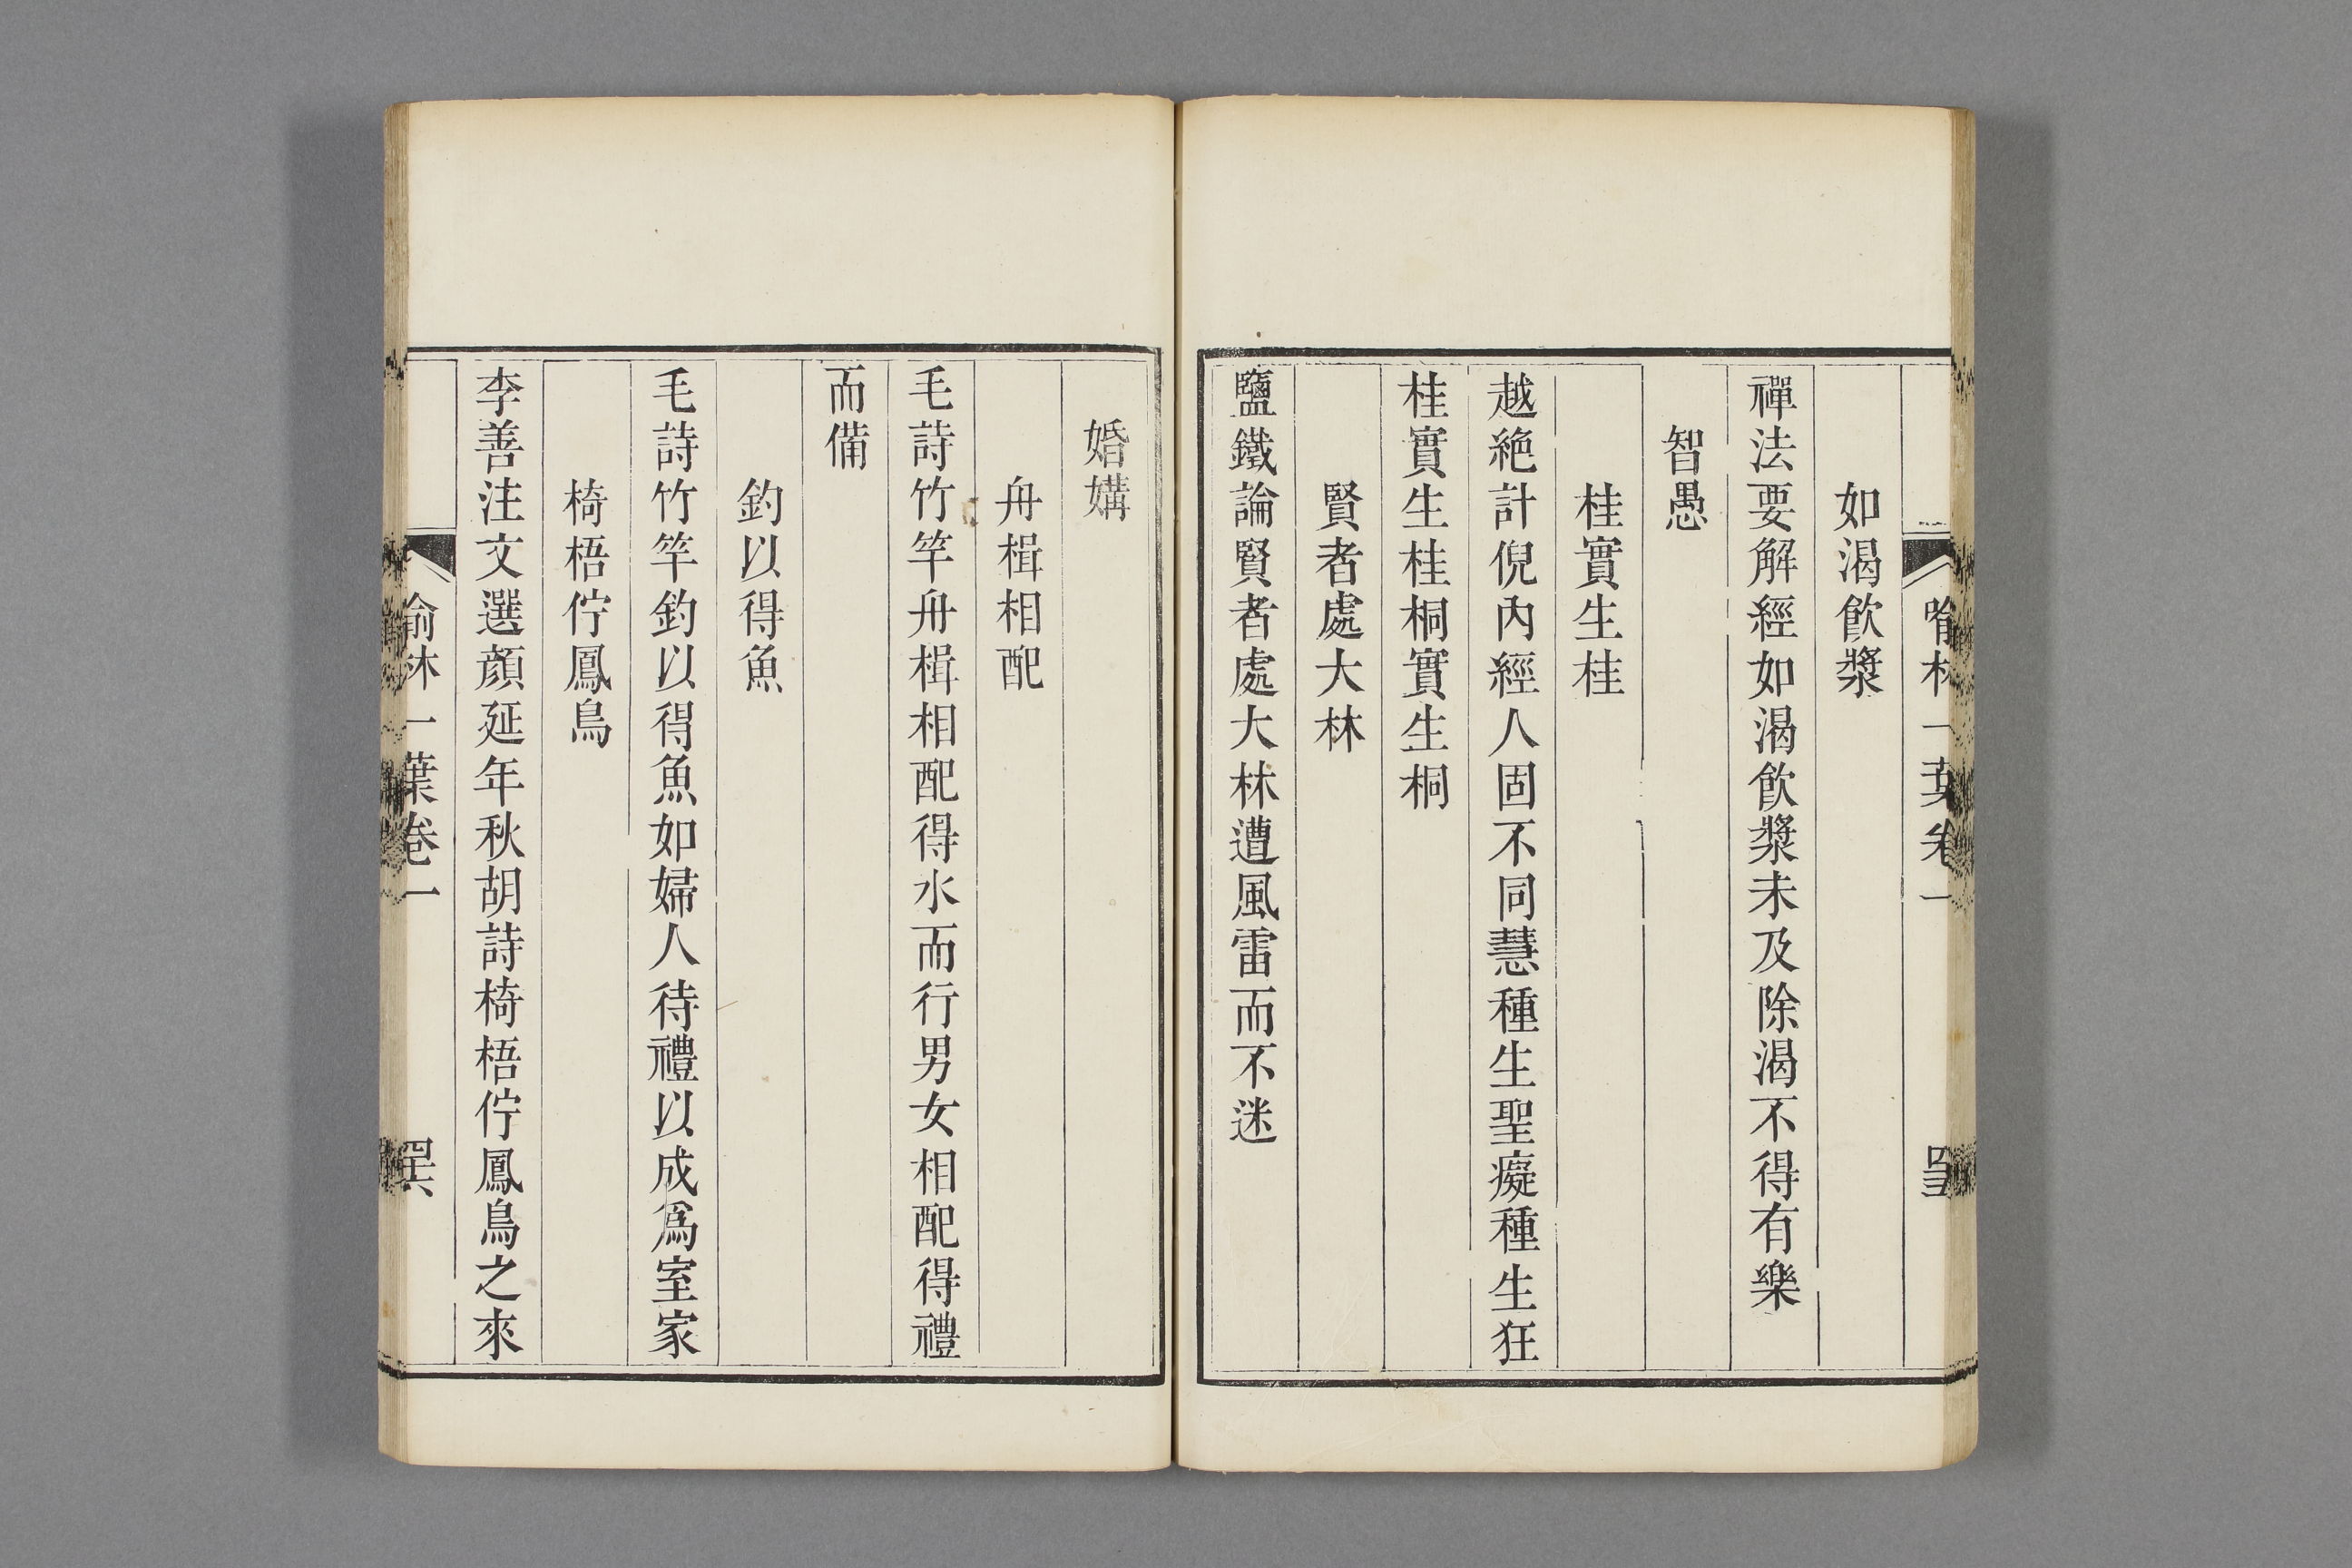 喻林一葉卷一
如渴飮漿
禪法要解經如渴飮漿未及除渴不得有樂
智愚
桂實生桂
越絶計倪內經人固不同慧種生聖癡種生狂
桂實生桂桐實生桐
賢者處大林
鹽鐵論賢者處大林遭風雷而不迷
婚媾
舟楫相配
毛詩竹竿舟楫相配得水而行男女相配得禮
而備
釣以得魚
毛詩竹竿釣以得魚如婦人待禮以成爲室家
椅梧佇鳳鳥
李善注文選顔延年秋胡詩椅梧佇鳳鳥之來
喻林一葉卷一